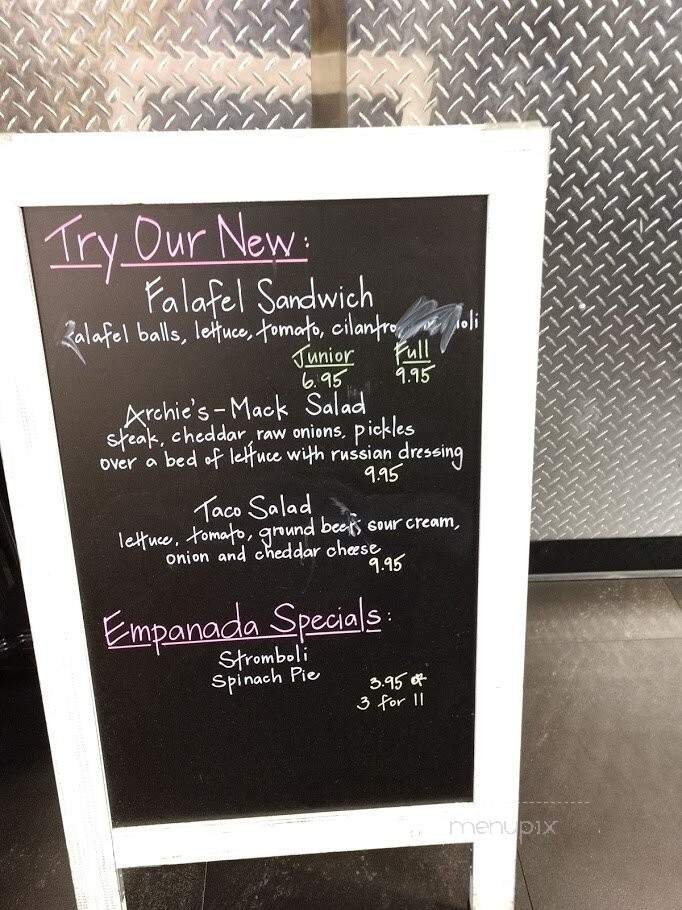 Try Our New:
Falafel Sandwich
Falafel balls, lettuce, tomato, cilantro,
Junior Full
6.95 9.95
Archie's-Mack Salad
steak, cheddar, raw onions, pickles
over a bed of lettuce with russian dressing
9.95
Taco Salad
lettuce, tomato, ground beef, sour cream,
onion and cheddar cheese
9.95
Empanada Specials:
Stromboli
Spinach Pie
3.95 or
3 for 11
menupix